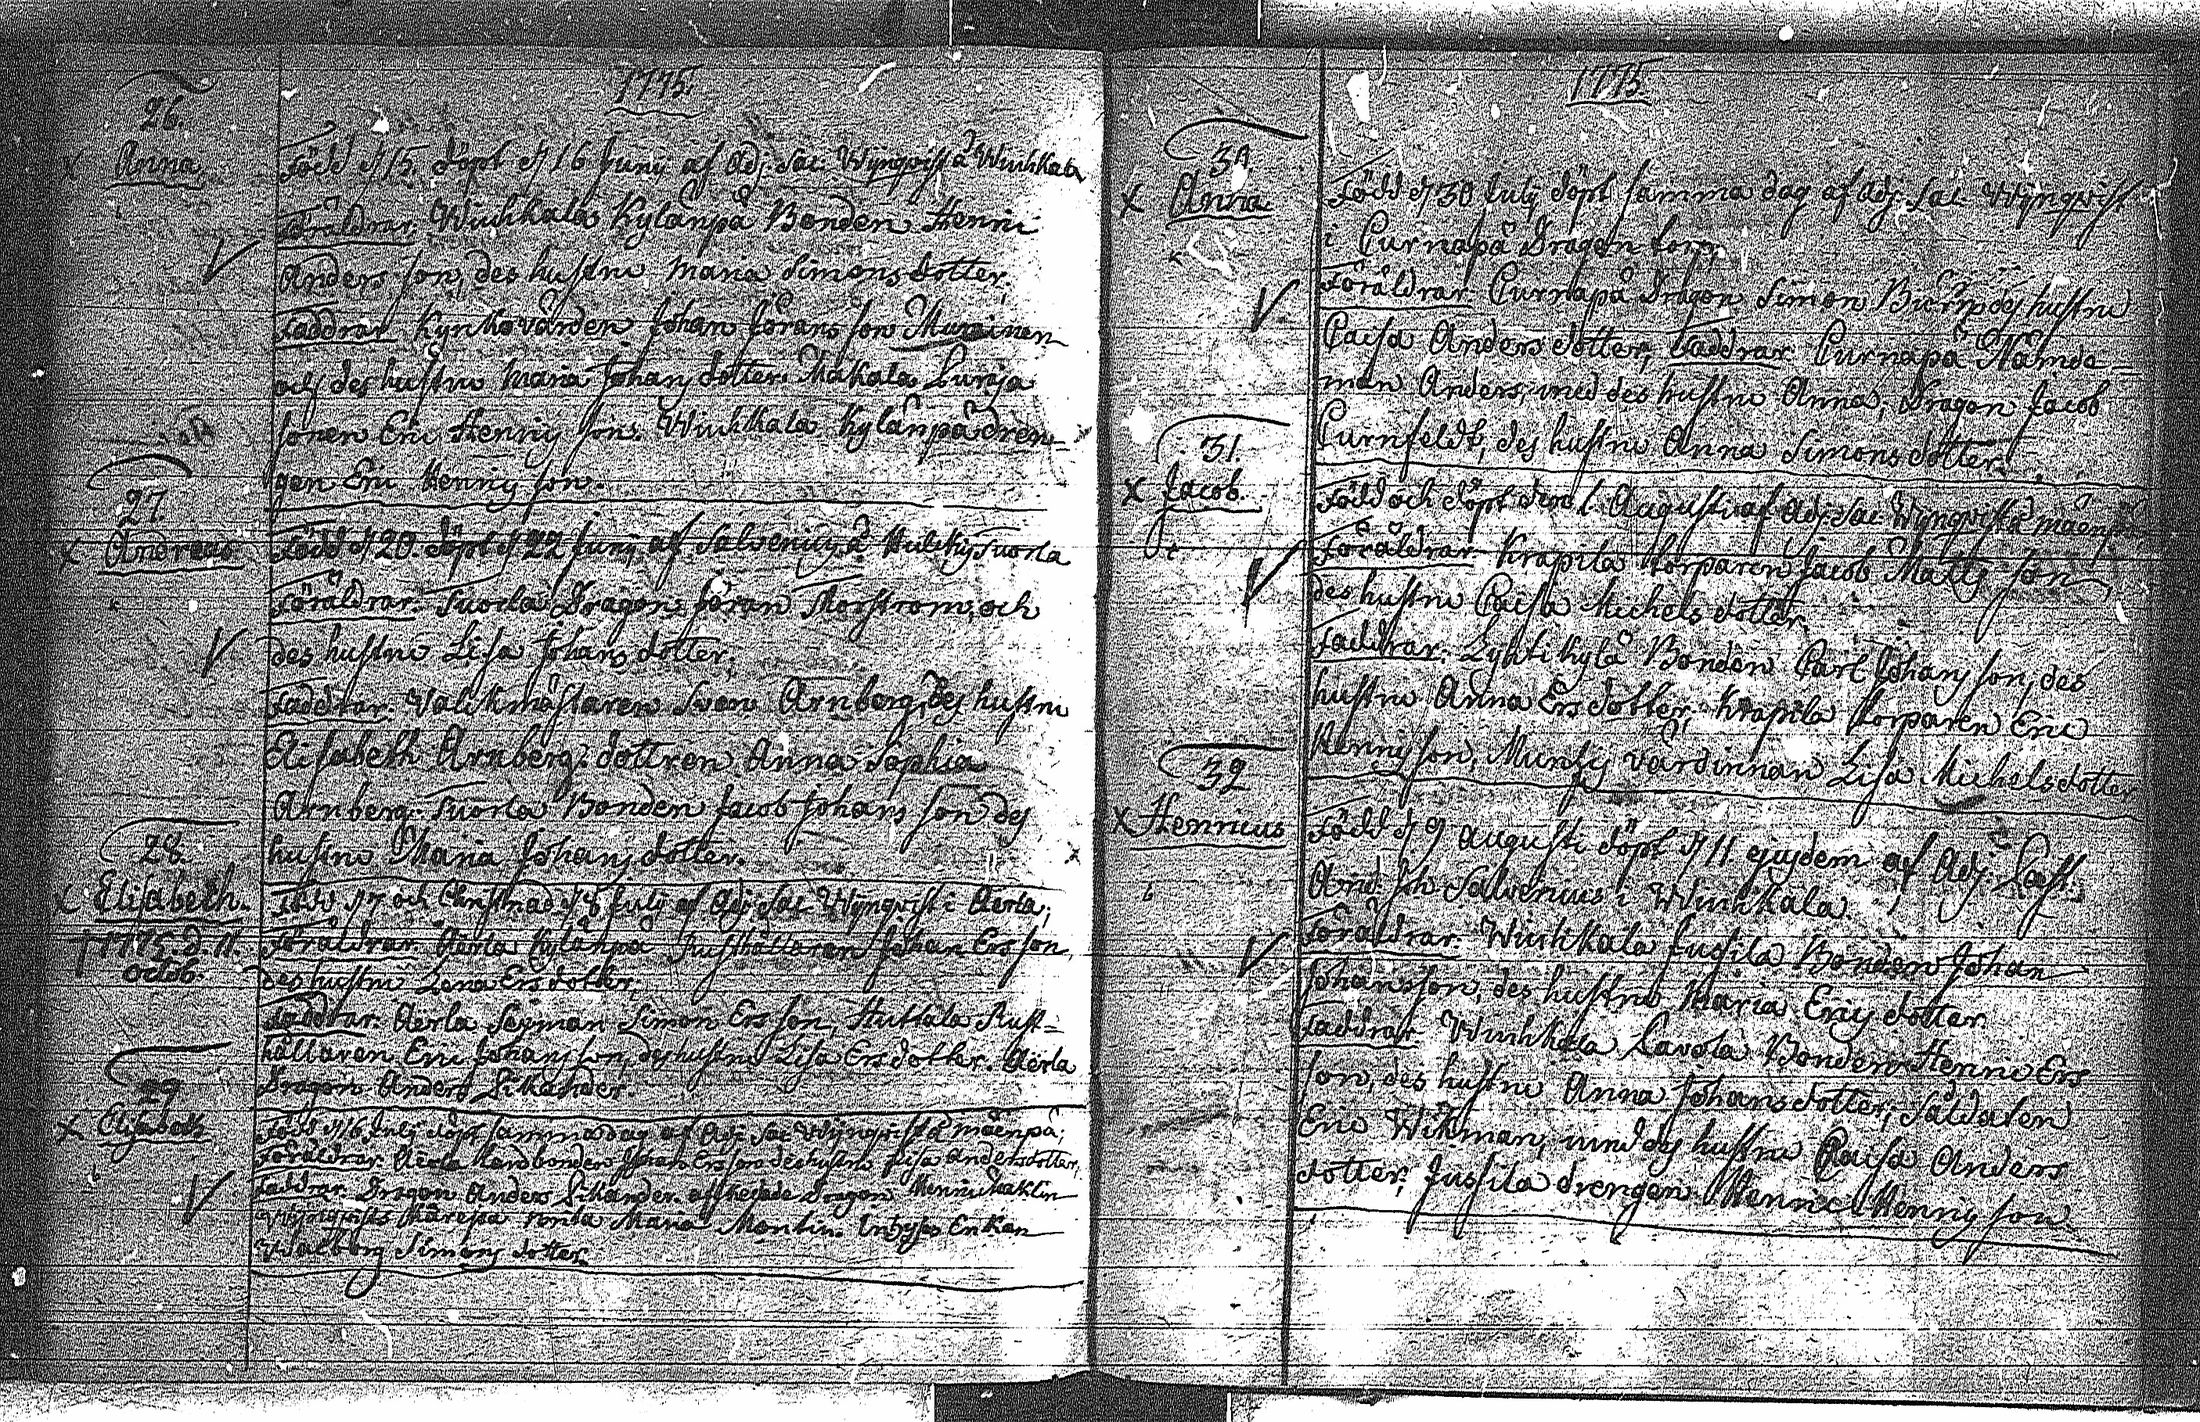 1775.
26.
Anna
Född d 15. döpt d 16 Junij af Adj. Sac. Wijnqvist å Wiuhkala
Föräldrar. Wiuhkala Kylänpä Bonden Henric
Anders son, des hustru Maria Simons dotter.
Faddrar. Johan Jörans son Murainen
och des hustru Maria Johans dotter. Makala
sonen Eric Henrics son. Wiuhkala Kylänpä dren=
gen Eric Henrics son.
27.
Andreas
Född d 20. döpt d 22 Junij af Salvenius å Suorla
Föräldrar. Suorla Dragon Jöran Morstrom, och
des hustru Lisa Johans dotter.
Faddrar. Valckmästaren Sven Arnberg, des hustru
Elisabeth Arnberg. dottren Anna Sophia
Arnberg. Suorla Bonden Jacob Johans son des
hustru Maria Johans dotter.
28.
Elisabeth.
† 1775. d. 11.
octob.
Född d 7 och Christnad d 8 Julij af Adj. Sac Wijnqvist i Aerla;
Föräldrar. Aerla Kylänpä Rusthållaren Johan Ers son,
des hustru Lena Ers dotter.
Faddrar. Aerla Simon Ers son, Huttala Rust=
hållaren Eric Johans son, des hustru Lisa Ers dotter. Aerla
Dragon Anders Likander.
29
Elisabeth
Född d 16 Julij döpt samma dag af Adj. Sac Wijnqvist å Mäenpä;
Föräldrar. Aerla Johan Ers son des hustru Lisa Anders dotter;
Faddrar. Dragon Anders Likander. afskedade Dragon Henric
Wijnqvists Maria Montin. Enkan
Walborg Simons dotter.
1775
30
Anna
Född d 30 Julij döpt samma dag af Adj. Sac. Wijnqvist
i Curnapä Dragon torp.
Föräldrar. Curnapä Dragon Simon des hustru
Caisa Anders dotter, Faddrar. Curnapä Nämde=
man Anders, med des hustru Anna, Dragon Jacob
Curnfeldt, des hustru Anna Simons dotter.
31.
Jacob.
Född och döpt den 1 Augusti af Adj. Sac Wijnqvist å Mäenpä
Föräldrar. Krapila torparen Jacob Matts son
des hustru Caisa Michels dotter.
Faddrar. Lyhtikylä Bonden Carl Johans son, des
hustru Anna Ers dotter, Krapila torparen Eric
Henrics son, värdinnan Lisa Michels dotter
32
Henricus
Född d 9 augusti döpt d 11 ejusdem af Adj. Past.
And. Joh Salvenius i Wiuhkala.
Föräldrar. Wiuhkala Jussila Bonden Johan
Johansson, des hustru Maria Erics dotter
Faddrar. Wiuhkala Lavola Bonden Henric Ers
son, des hustru Anna Johans dotter; Saldaten
Eric Wikman, med des hustru Caisa Anders
dotter; Jussila drengen Henric Henrics son